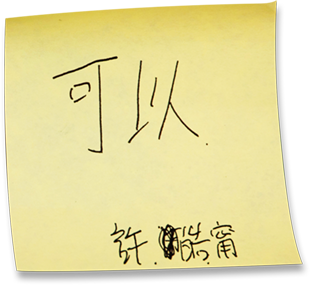 可以.
許酷甯